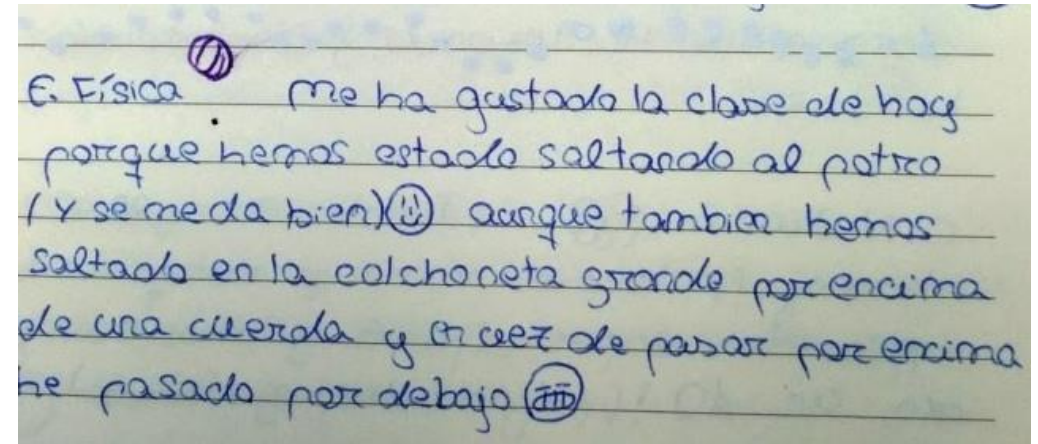 E. Física Me ha gustado la clase de hoy
porque hemos estado saltando al potro
(Y se me da bien) aunque tambien hemos
saltado en la colchoneta grande por encima
de una cuerda y en vez de pasar por encima
he pasado por debajo